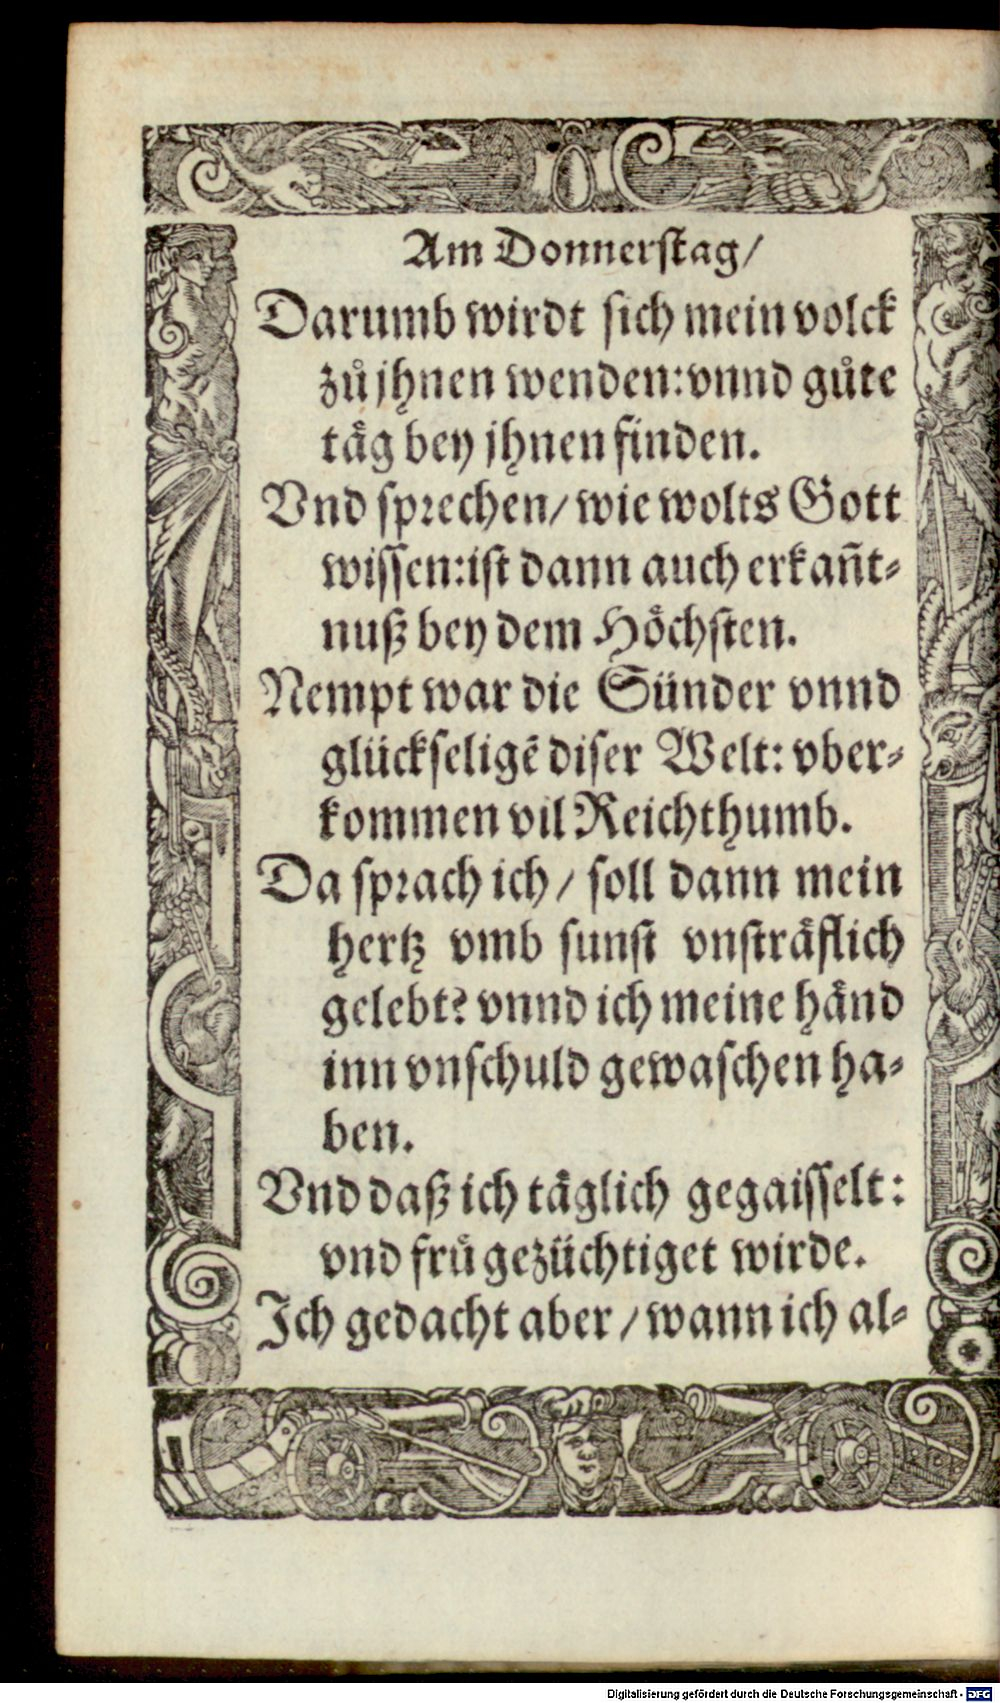 Am Donnerstag/
Darumb wirdt sich mein volck
zů jhnen wenden: vnnd gůte
täg bey jhnen finden.
Vnd sprechen/ wie wolts Gott
wissen: ist dann auch erkañt-
nuß bey dem Höchsten.
Nempt war die Sünder vnnd
glückseligẽ diser Welt: vber-
kommen vil Reichthumb.
Da sprach ich/ soll dann mein
hertz vmb sunst vnsträflich
gelebt? vnnd ich meine händ
inn vnschuld gewaschen ha-
ben.
Vnd daß ich täglich gegaisselt:
vnd frů gezüchtiget wirde.
Ich gedacht aber/ wann ich al-
Digitalisierung gefördert durch die Deutsche Forschungsgemeinschaft - DFG